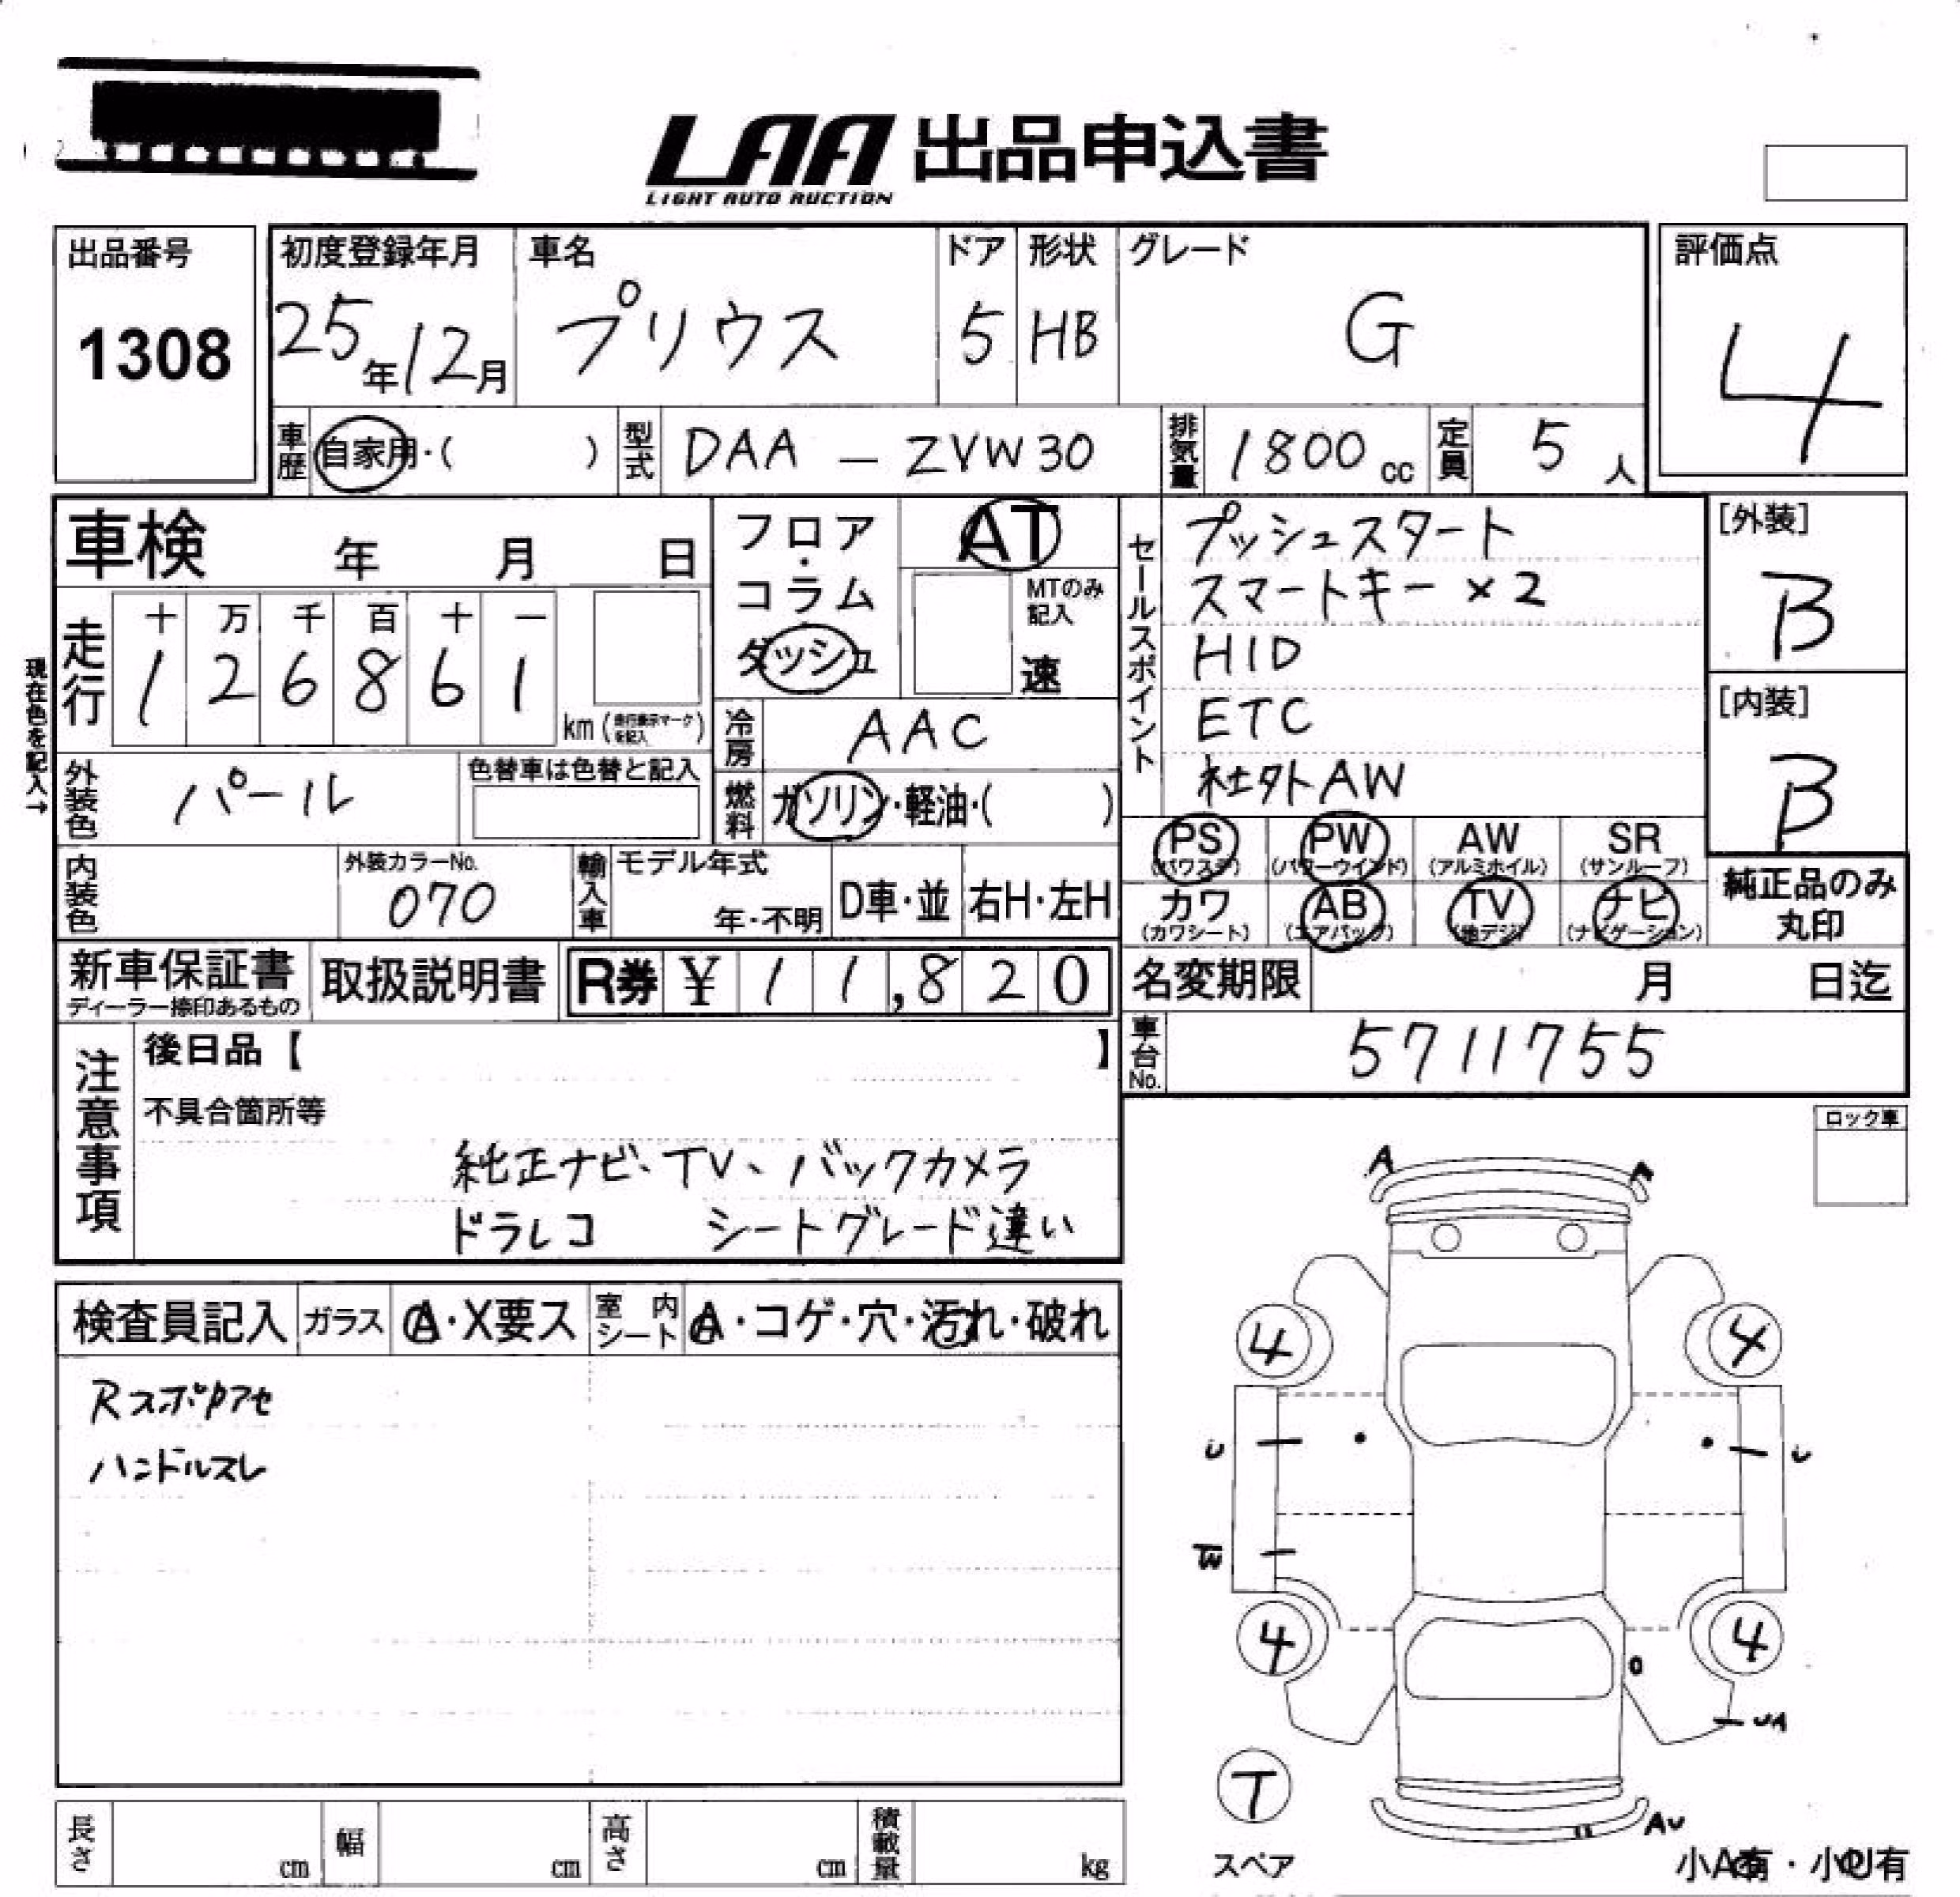 LAA 出品申込書
LIGHT AUTO AUCTION
出品番号
1308
初度登録年月
25年12月
車名
プリウス
ドア
5
形状
HB
グレード
G
評価点
4
車歴
自家用・( )
型式
DAA - ZVW30
排気量
1800cc
定員
5人
車検 年 月 日
走行
十 万 千 百 十 一
1 2 6 8 6 1
km(走行表示マークを記入)
現在色を記入→
外装色
パール
色替車は色替と記入
フロア・コラム
ダッシュ
AT
MTのみ
記入
速
冷房
AAC
燃料
ガソリン・軽油・( )
セールスポイント
プッシュスタート
スマートキー×2
HID
ETC
社外AW
[外装]
B
[内装]
B
PS (パワステ)
PW (パワーウインド)
AW (アルミホイル)
SR (サンルーフ)
カワ (カワシート)
AB (エアバッグ)
TV (地デジ)
ナビ (ナビゲーション)
純正品のみ
丸印
内装色
外装カラーNo.
070
輸入車
モデル年式
年・不明
D車・並
右H・左H
新車保証書
ディーラー捺印あるもの
取扱説明書
R券 ¥11,820
名変期限 月 日迄
車台No.
5711755
注意事項
後日品【 】
不具合箇所等
純正ナビ、TV、バックカメラ
ドラレコ シートグレード違い
ロック車
検査員記入
ガラス
A・X要ス
室内シート
A・コゲ・穴・汚れ・破れ
ハンドルスレ
A
4
4
U
U
W
4
4
UA
T
スペア
AU
小A有・小U有
長さ cm
幅 cm
高さ cm
積載量 kg